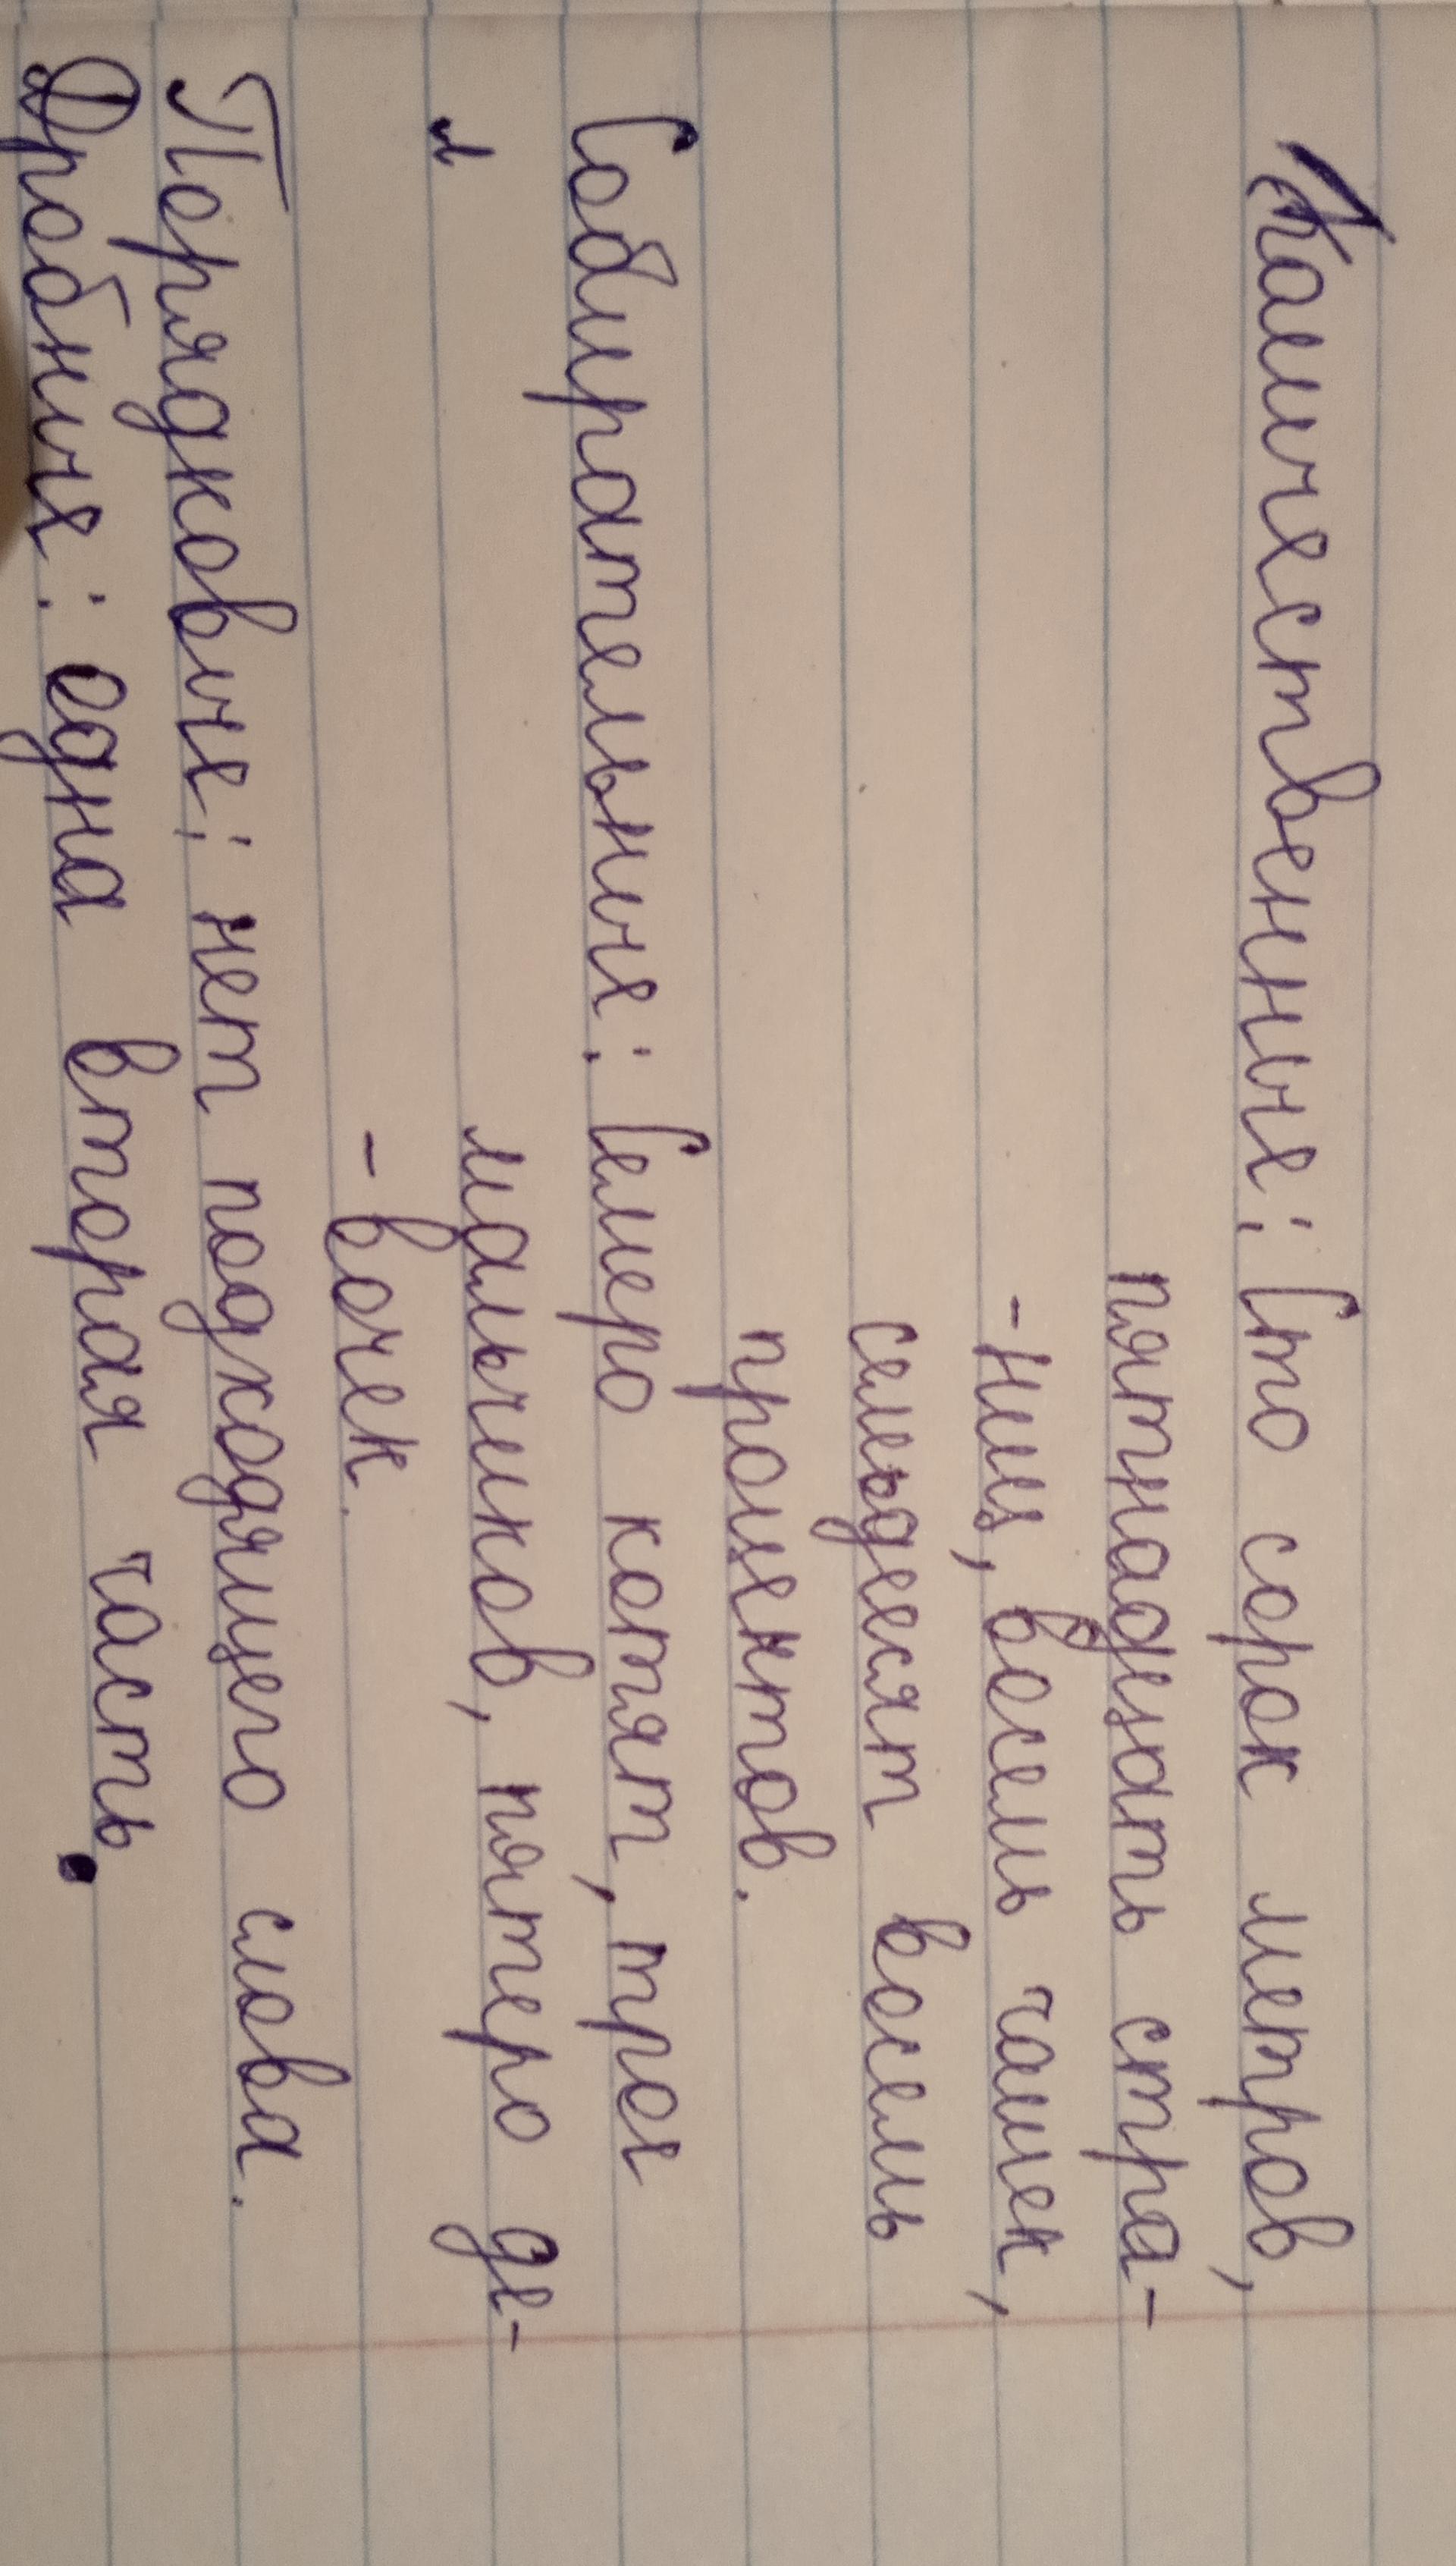 Количественные: Сто сорок метров,
пятнадцать стра-
-ниц, восемь чашек,
семьдесят восемь
процентов.
Собирательные: Семеро котят, трое
мальчиков, пятеро де-
-вочек.
Порядковые: нет подходящего слова.
Дробные: одна вторая часть.